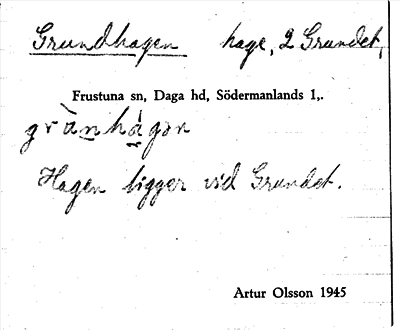 Grundhagen hage, 2 Grundet,
Frustuna sn, Daga hd, Södermanlands l,.
Hagen ligger vid Grundet.
Artur Olsson 1945